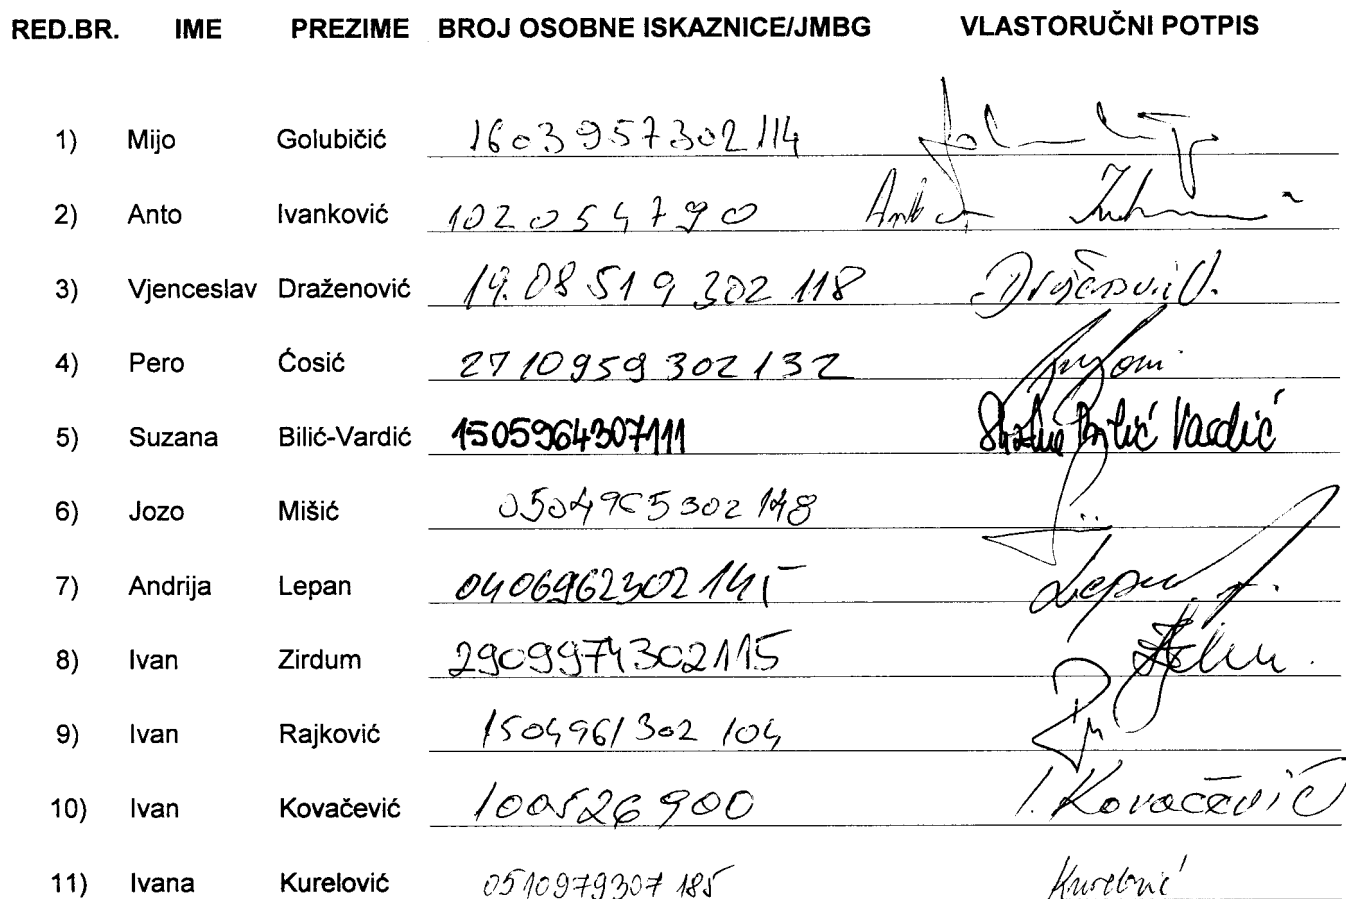 RED.BR. IME PREZIME BROJ OSOBNE ISKAZNICE/JMBG VLASTORUČNI POTPIS
1) Mijo Golubičić 1603957302114
2) Anto Ivanković 102054790
3) Vjenceslav Draženović 302 118
4) Pero Ćosić 2710959302132
5) Suzana Bilić-Vardić 1505964307111 Suzana Bilić Vardić
6) Jozo Mišić 0504965302148
7) Andrija Lepan 0406962302145 Lepan A.
8) Ivan Zirdum 2909974302115
9) Ivan Rajković 1504961302104
10) Ivan Kovačević 100526900 I. Kovačević
11) Ivana Kurelović 0510979307185 Kurelović